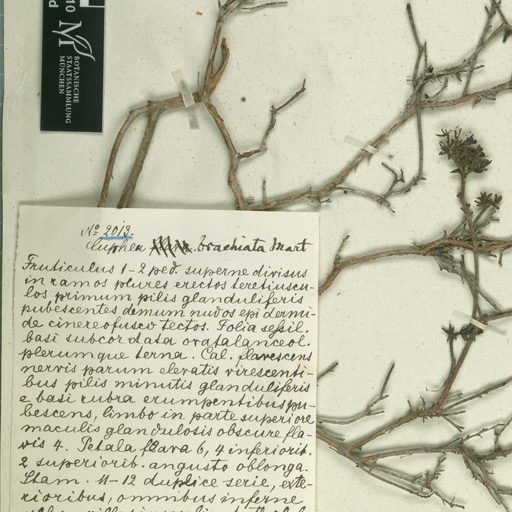 10
M
BOTANISCHE
STAATSSAMMLUNG
MÜNCHEN
No 2013.
Cuphea brachiata Mart
Fruticulus 1-2 ped. superne divisus
in ramos plures erectos teretiuscu-
los primum pilis glanduliferis
pubescentes demum nudos epidermi-
de cinereofusco tectos. Folia sessil.
basi subcordata ovatalanceol.
plerumque terna. Cal. flavescens
nervis parum elevatis virescenti-
bus pilis minutis glanduliferis
e basi rubra erumpentibus pu-
bescens, limbo in parte superiore
maculis glandulosis obscure fla-
vis 4. Petala flava 6, 4 inferiorib.
2 superiorib. angusto oblonga.
Stam. 11-12 duplice serie, exte-
rioribus, omnibus inferne